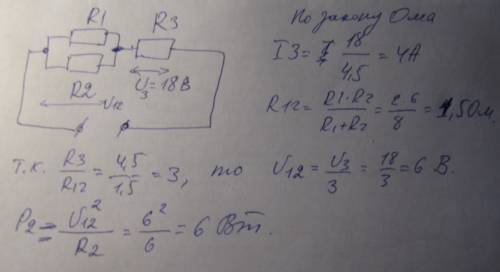 R1
R3
U3=18В
R2
U12
По закону Ома
I3 = 18/4,5 = 4А
R12 = R1·R2/R1+R2 = 2·6/8 = 1,5Ом.
т.к. R3/R12 = 4,5/1,5 = 3, то U12 = U3/3 = 18/3 = 6 В.
P2 = U12²/R2 = 6²/6 = 6 Вт.